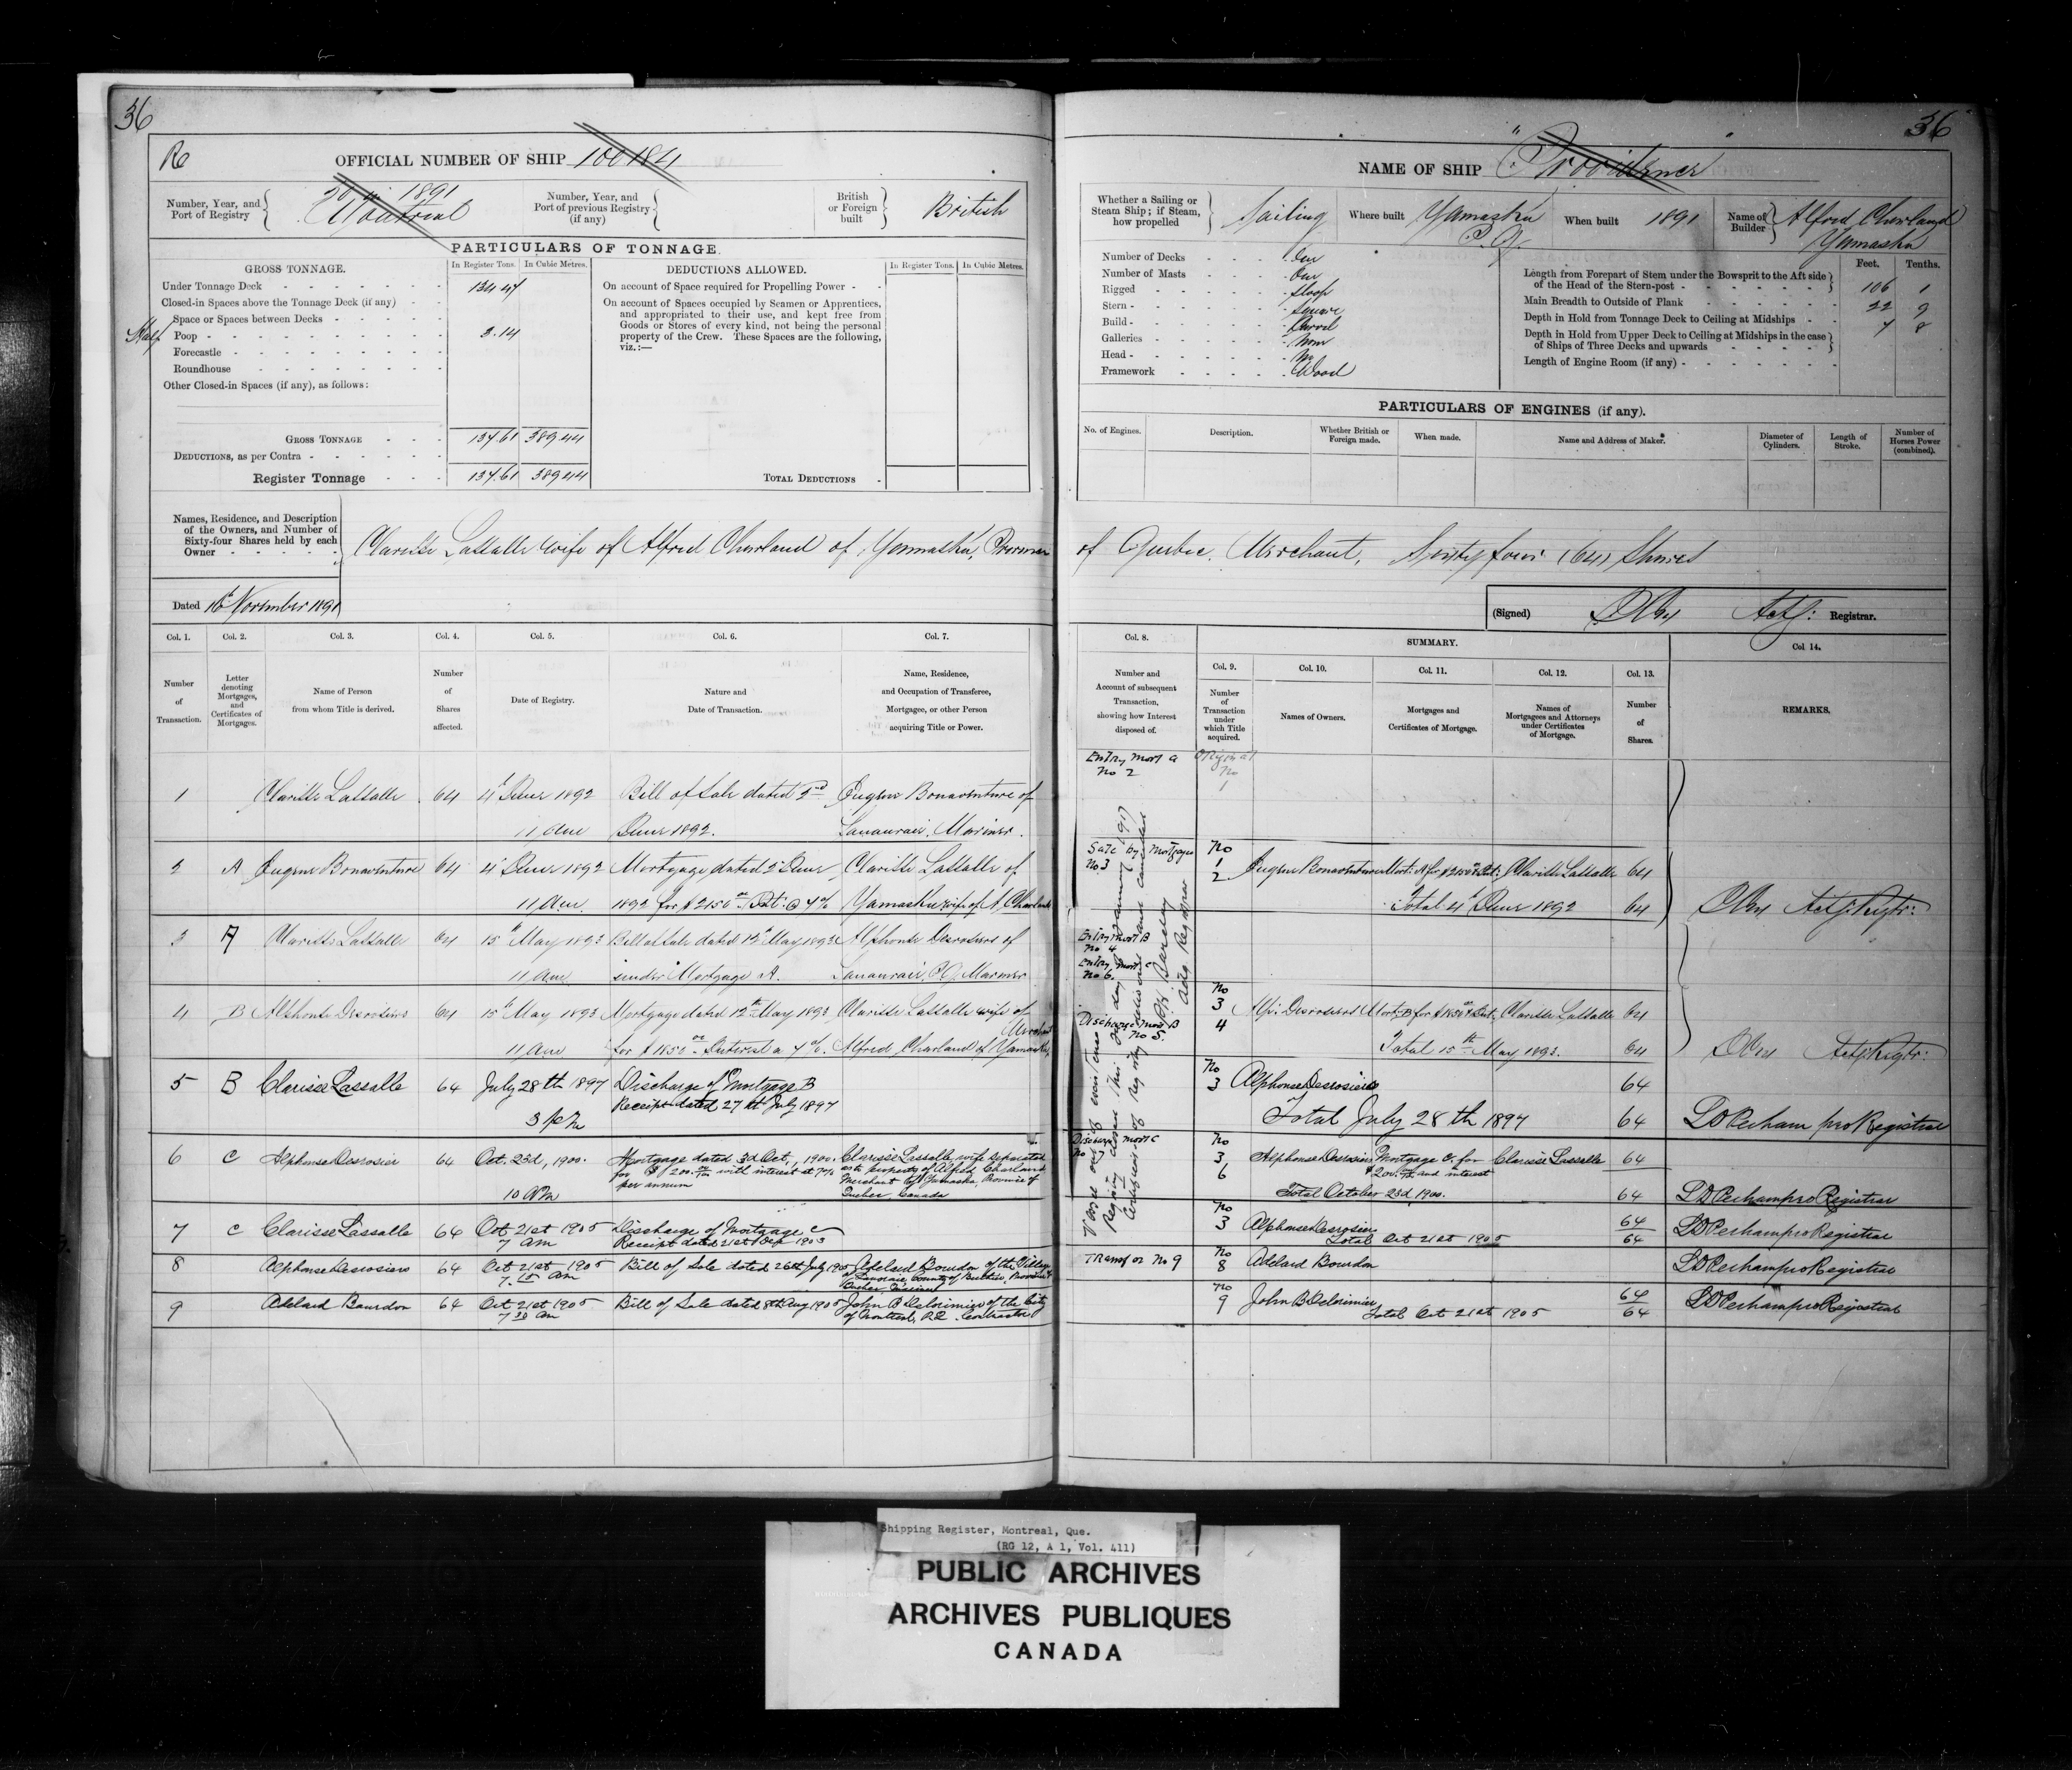 36
Re
OFFICIAL NUMBER OF SHIP 100184
Number, Year, and Port of Registry
20 in 1891
Montreal
Number, Year, and Port of previous Registry (if any)
British or Foreign built
British
PARTICULARS OF TONNAGE.
GROSS TONNAGE.
In Register Tons. In Cubic Metres.
DEDUCTIONS ALLOWED.
In Register Tons. In Cubic Metres.
Under Tonnage Deck 134.47
Closed-in Spaces above the Tonnage Deck (if any)
Space or Spaces between Decks
Half Poop 3.14
Forecastle
Roundhouse
Other Closed-in Spaces (if any), as follows:
GROSS TONNAGE 137.61 389.44
DEDUCTIONS, as per Contra
Register Tonnage 137.61 389.44
On account of Space required for Propelling Power
On account of Spaces occupied by Seamen or Apprentices,
and appropriated to their use, and kept free from
Goods or Stores of every kind, not being the personal
property of the Crew. These Spaces are the following,
viz.:—
TOTAL DEDUCTIONS
Names, Residence, and Description
of the Owners, and Number of
Sixty-four Shares held by each
Owner
Clarisse Lassalle wife of Alfred Charland of Yamaska, Province
Dated 16th November 1891
Col. 1. Col. 2. Col. 3. Col. 4. Col. 5. Col. 6. Col. 7.
Number of Transaction.
Letter denoting Mortgages, and Certificates of Mortgages.
Name of Person from whom Title is derived.
Number of Shares affected.
Date of Registry.
Nature and Date of Transaction.
Name, Residence, and Occupation of Transferee, Mortgagee, or other Person acquiring Title or Power.
1 Clarisse Lassalle 64 4th June 1892 Bill of Sale dated 2nd Eugene Bonaventure of
11 am June 1892. Lanoraie, Mariner.
2 A Eugene Bonaventure 64 4th June 1892 Mortgage dated 2d June Clarisse Lassalle of
11 a.m. 1892 for $2150 00 Int: @ 7% Yamaska wife of A. Charland
3 A Clarisse Lassalle 64 15th May 1893 Bill of Sale dated 12th May 1893 Alphonse Desrosiers of
11 am under Mortgage A. Lanoraie, P.Q. Mariner
4 B Alphonse Desrosiers 64 15th May 1893 Mortgage dated 12th May 1893 Clarisse Lassalle wife of
Merchant
11 am for $1850 00 Interest a 7%. Alfred Charland of Yamaska,
5 B Clarisse Lassalle 64 July 28th 1897 Discharge of Mortgage B
3 pm Receipt dated 27th July 1897
6 C Alphonse Desrosier 64 Oct. 23d, 1900. Mortgage dated 3d Oct., 1900. Clarisse Lassalle, wife separated
for $1200. with interest at 7% as to property of Alfred Charland
per annum Merchant of Yamaska, Province of
10 AM Quebec, Canada
7 C Clarisse Lassalle 64 Oct 21st 1905 Discharge of Mortgage C
7 am Receipt dated 21st Sep 1903
8 Alphonse Desrosiers 64 Oct 21st 1905 Bill of Sale dated 26th July 1905 Adelard Bourdon of the Village
7.15 am of Lanoraie, County of Berthier, Province of
Quebec Mariner
9 Adelard Bourdon 64 Oct 21st 1905 Bill of Sale dated 8th Aug 1905 John B Delorimier of the City
7 30 am of Montreal, P.Q. Contractor
36
NAME OF SHIP "Providence"
Whether a Sailing or Steam Ship; if Steam, how propelled
Sailing
Where built Yamaska P.Q.
When built 1891
Name of Builder
Alfred Charland
Yamaska
Number of Decks One
Number of Masts One
Rigged Sloop
Stern Square
Build Carvel
Galleries None
Head No
Framework Wood
Feet. Tenths.
Length from Forepart of Stem under the Bowsprit to the Aft side
of the Head of the Stern-post 106 1
Main Breadth to Outside of Plank 22 9
Depth in Hold from Tonnage Deck to Ceiling at Midships 7 8
Depth in Hold from Upper Deck to Ceiling at Midships in the case
of Ships of Three Decks and upwards
Length of Engine Room (if any)
PARTICULARS OF ENGINES (if any).
No. of Engines.
Description.
Whether British or Foreign made.
When made.
Name and Address of Maker.
Diameter of Cylinders.
Length of Stroke.
Number of Horses Power (combined).
of Quebec, Merchant, Sixty four (64) Shares
(Signed) Actg: Registrar.
Col. 8. SUMMARY. Col 14.
Col. 9. Col. 10. Col. 11. Col. 12. Col. 13.
Number and Account of subsequent Transaction, showing how Interest disposed of.
Number of Transaction under which Title acquired.
Names of Owners.
Mortgages and Certificates of Mortgage.
Names of Mortgagees and Attorneys under Certificates of Mortgage.
Number of Shares.
REMARKS.
Entry Mort A
No 2
Original
No
1
Sale by Mortgagee
No 3
No
1
2
Eugene Bonaventure Mort: A for $2150 Int: Clarisse Lassalle 64
Total 4th June 1892 64
Actg: Regtr:
Entry Mort B
No 4
Entry Mort C
No 6.
Discharge Mort B
No 5.
No
3
4
Alp: Desrosiers Mort: B for $1850 Int: Clarisse Lassalle 64
Total 15th May 1893. 64
Actg: Regtr:
No
3 Alphonse Desrosiers 64
Total July 28th 1897 64 LD Perham pro Registrar
Discharge Mort C
No
3
6
Alphonse Desrosier Mortgage C. for Clarisse Lassalle 64
and interest
Total October 23d, 1900. 64 LD Perham pro Registrar
No
3 Alphonse Desrosier 64
Total Oct 21st 1905 64 LD Perham pro Registrar
Transfer No 9
No
8 Adelard Bourdon LD Perham pro Registrar
No
9 John B Delorimier 64
Total Oct 21st 1905 64 LD Perham pro Registrar
Shipping Register, Montreal, Que.
(RG 12, A 1, Vol. 411)
PUBLIC ARCHIVES
ARCHIVES PUBLIQUES
CANADA